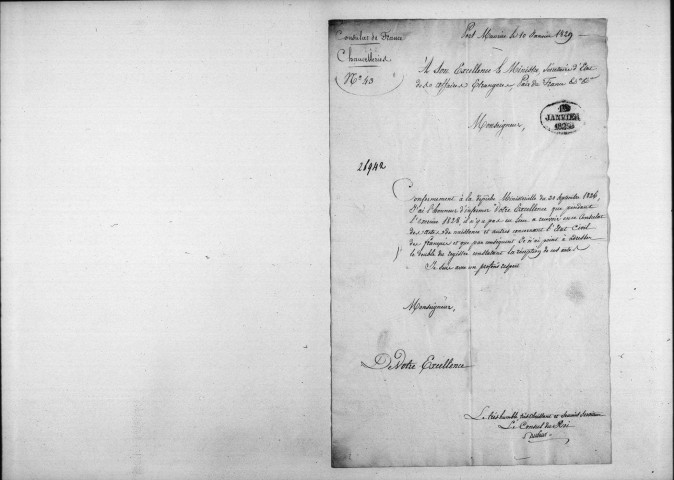 Consulat de France
Chancelleries
N° 43
Port Maurice le 10 Janvier 1829
A Son Excellence le Ministre Secrétaire d'Etat
des affaires Etrangeres, Pair de France &a &a
JANVIER
Monseigneur,
26942
Conformement à la depêche Ministerielle du 20 Septembre 1826,
J'ai l'honneur d'informer Votre Excellence que pendant
l'année 1828, il n'y a pas eu lieu à recevoir en ce Consulat
des actes de naissance et autres concernant l'Etat Civil
des français et que par conséquent Je n'ai point à adresser
le double du registre constatant la réception de ces actes.
Je suis avec un profond respect
Monseigneur,
De Votre Excellence
Le très humble, très obeissant et Serviteur
Le Consul du Roi